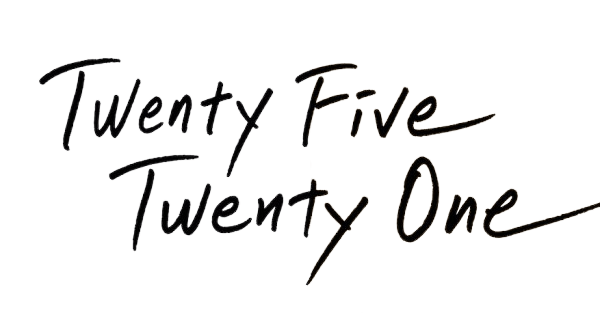 Twenty Five
Twenty One